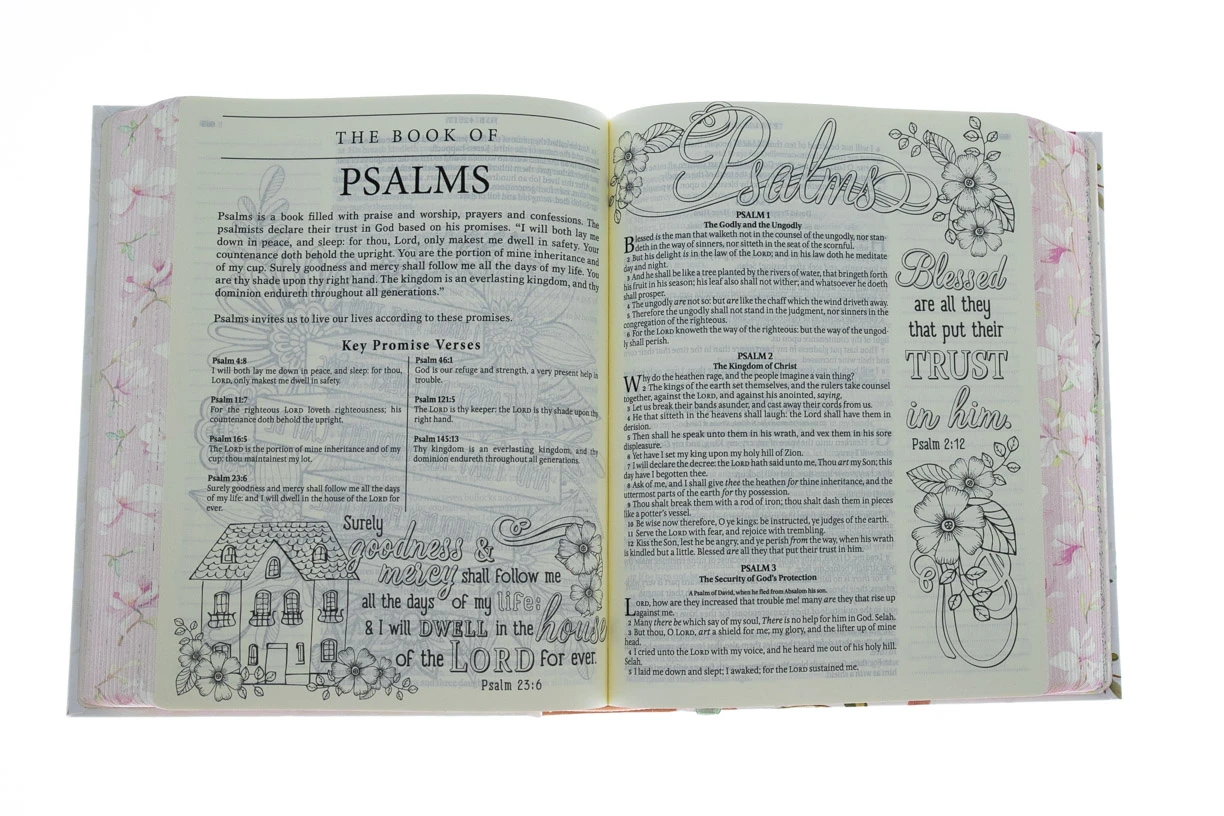 THE BOOK OF
PSALMS
Psalms is a book filled with praise and worship, prayers and confessions. The
psalmists declare their trust in God based on his promises. “I will both lay me
down in peace, and sleep: for thou, Lord, only makest me dwell in safety. Your
countenance doth behold the upright. You are the portion of mine inheritance and
of my cup. Surely goodness and mercy shall follow me all the days of my life. You
are thy shade upon thy right hand. The kingdom is an everlasting kingdom, and thy
dominion endureth throughout all generations.”
Psalms invites us to live our lives according to these promises.
Key Promise Verses
Psalm 4:8
I will both lay me down in peace, and sleep: for thou,
LORD, only makest me dwell in safety.
Psalm 11:7
For the righteous LORD loveth righteousness; his
countenance doth behold the upright.
Psalm 16:5
The LORD is the portion of mine inheritance and of my
cup: thou maintainest my lot.
Psalm 23:6
Surely goodness and mercy shall follow me all the days
of my life: and I will dwell in the house of the LORD for
ever.
Psalm 46:1
God is our refuge and strength, a very present help in
trouble.
Psalm 121:5
The LORD is thy keeper: the LORD is thy shade upon thy
right hand.
Psalm 145:13
Thy kingdom is an everlasting kingdom, and thy
dominion endureth throughout all generations.
Surely
goodness &
mercy shall follow me
all the days of my life:
& I will DWELL in the house
of the LORD for ever.
Psalm 23:6
Psalms
PSALM 1
The Godly and the Ungodly
Blessed is the man that walketh not in the counsel of the ungodly, nor stan-
deth in the way of sinners, nor sitteth in the seat of the scornful.
2 But his delight is in the law of the LORD; and in his law doth he meditate
day and night.
3 And he shall be like a tree planted by the rivers of water, that bringeth forth
his fruit in his season; his leaf also shall not wither; and whatsoever he doeth
shall prosper.
4 The ungodly are not so: but are like the chaff which the wind driveth away.
5 Therefore the ungodly shall not stand in the judgment, nor sinners in the
congregation of the righteous.
6 For the LORD knoweth the way of the righteous: but the way of the ungod-
ly shall perish.
PSALM 2
The Kingdom of Christ
Why do the heathen rage, and the people imagine a vain thing?
2 The kings of the earth set themselves, and the rulers take counsel
together, against the LORD, and against his anointed, saying,
3 Let us break their bands asunder, and cast away their cords from us.
4 He that sitteth in the heavens shall laugh: the Lord shall have them in
derision.
5 Then shall he speak unto them in his wrath, and vex them in his sore
displeasure.
6 Yet have I set my king upon my holy hill of Zion.
7 I will declare the decree: the LORD hath said unto me, Thou art my Son; this
day have I begotten thee.
8 Ask of me, and I shall give thee the heathen for thine inheritance, and the
uttermost parts of the earth for thy possession.
9 Thou shalt break them with a rod of iron; thou shalt dash them in pieces
like a potter's vessel.
10 Be wise now therefore, O ye kings: be instructed, ye judges of the earth.
11 Serve the LORD with fear, and rejoice with trembling.
12 Kiss the Son, lest he be angry, and ye perish from the way, when his wrath
is kindled but a little. Blessed are all they that put their trust in him.
PSALM 3
The Security of God's Protection
A Psalm of David, when he fled from Absalom his son.
LORD, how are they increased that trouble me! many are they that rise up
against me.
2 Many there be which say of my soul, There is no help for him in God. Selah.
3 But thou, O LORD, art a shield for me; my glory, and the lifter up of mine
head.
4 I cried unto the LORD with my voice, and he heard me out of his holy hill.
Selah.
5 I laid me down and slept; I awaked; for the LORD sustained me.
Blessed
are all they
that put their
TRUST
in him.
Psalm 2:12